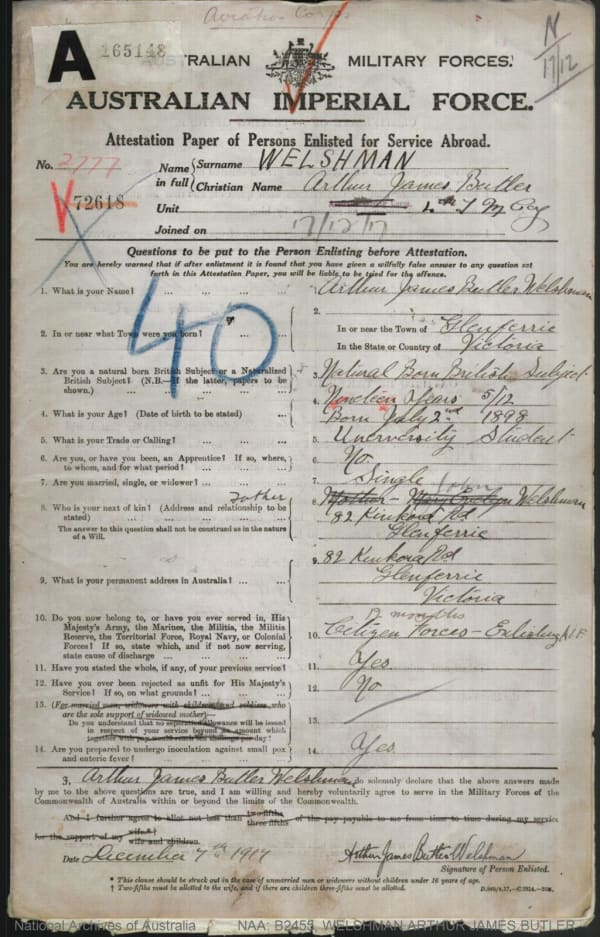 Aviation Corps
A 165148
N
17/12
AUSTRALIAN MILITARY FORCES.
AUSTRALIAN IMPERIAL FORCE.
Attestation Paper of Persons Enlisted for Service Abroad.
No. 2777
72618
Name in full { Surname WELSHMAN
Christian Name Arthur James Butler
Unit
Joined on 17/12/17
Questions to be put to the Person Enlisting before Attestation.
You are hereby warned that if after enlistment it is found that you have given a wilfully false answer to any question set
forth in this Attestation Paper, you will be liable to be tried for the offence.
40
1. What is your Name? ... ... ... Arthur James Butler Welshman
2. In or near what Town were you born? ... ... 2. In or near the Town of Glenferrie
In the State or Country of Victoria
3. Are you a natural born British Subject or a Naturalized
British Subject? (N.B.—If the latter, papers to be
shown.) ... ... 3. Natural Born British Subject
4. What is your Age? (Date of birth to be stated) ... 4. Nineteen Years 5/12
Born July 2nd 1898
5. What is your Trade or Calling? ... ... ... 5. University Student
6. Are you, or have you been, an Apprentice? If so, where,
to whom, and for what period? ... ... ... 6. No
7. Are you married, single, or widower? ... ... 7. Single
8. Who is your next of kin? (Address and relationship to be
stated) ... ... ... Father
The answer to this question shall not be construed as in the nature
of a Will.
8. Mother - Mary Welshman
John
82 Kinkora Rd
Glenferrie
9. What is your permanent address in Australia? ... ... 9. 82 Kinkora Rd
Glenferrie
Victoria
10. Do you now belong to, or have you ever served in, His
Majesty's Army, the Marines, the Militia, the Militia
Reserve, the Territorial Force, Royal Navy, or Colonial
Forces? If so, state which, and if not now serving,
state cause of discharge ... ... ...
12 months
10. Citizen Forces - Enlisting A.I.F.
11. Have you stated the whole, if any, of your previous service? 11. Yes
12. Have you ever been rejected as unfit for His Majesty's
Service? If so, on what grounds? ... ... ... 12. No
13. (For married men, widowers with children and soldiers who
are the sole support of widowed mother)—
Do you understand that no separation allowance will be issued
in respect of your service beyond an amount which
together with pay would reach ten shillings per day? 13.
14. Are you prepared to undergo inoculation against small pox
and enteric fever? ... ... ... 14. Yes.
I, Arthur James Butler Welshman do solemnly declare that the above answers made
by me to the above questions are true, and I am willing and hereby voluntarily agree to serve in the Military Forces of the
Commonwealth of Australia within or beyond the limits of the Commonwealth.
And I further agree to allot not less than two-fifths three-fifths of the pay payable to me from time to time during my service
for the support of my wife.* wife and children.
Date December 7th 1917 Arthur James Butler Welshman
Signature of Person Enlisted.
* This clause should be struck out in the case of unmarried men or widowers without children under 16 years of age.
† Two-fifths must be allotted to the wife, and if there are children three-fifths must be allotted.
National Archives of Australia NAA: B2455, WELSHMAN ARTHUR JAMES BUTLER